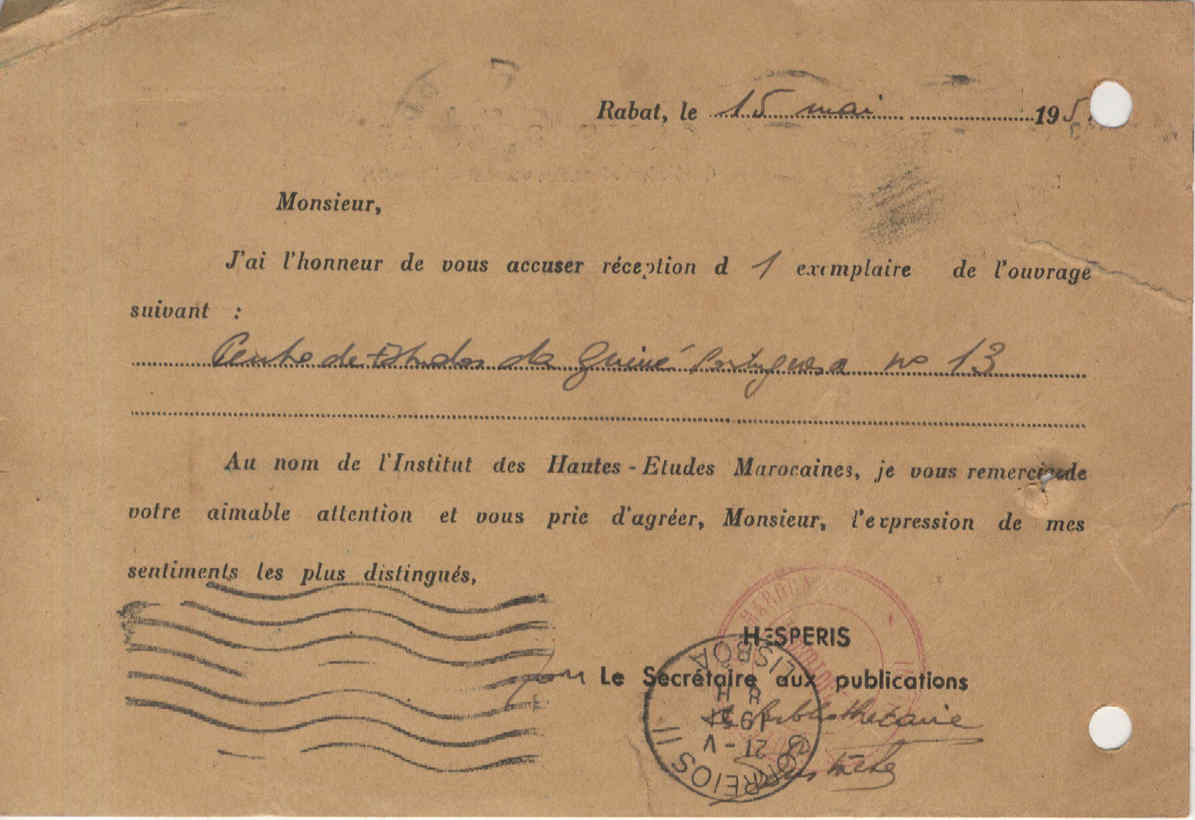 Rabat, le 15 mai 195
Monsieur,
J'ai l'honneur de vous accuser réception d 1 exemplaire de l'ouvrage
suivant :
Centro de Estudos da Guiné Portuguesa no 13
Au nom de l'Institut des Hautes-Etudes Marocaines, je vous remercie de
votre aimable attention et vous prie d'agréer, Monsieur, l'expression de mes
sentiments les plus distingués,
HESPERIS
pour Le Secrétaire aux publications
Bibliothécaire
CORREIOS II
21-V
LISBOA